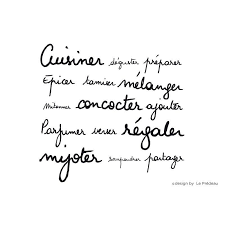 Cuisiner déguster préparer
Epicer tamiser mélanger
Mitonner concocter ajouter
Parfumer verser régaler
mijoter saupoudrer partager